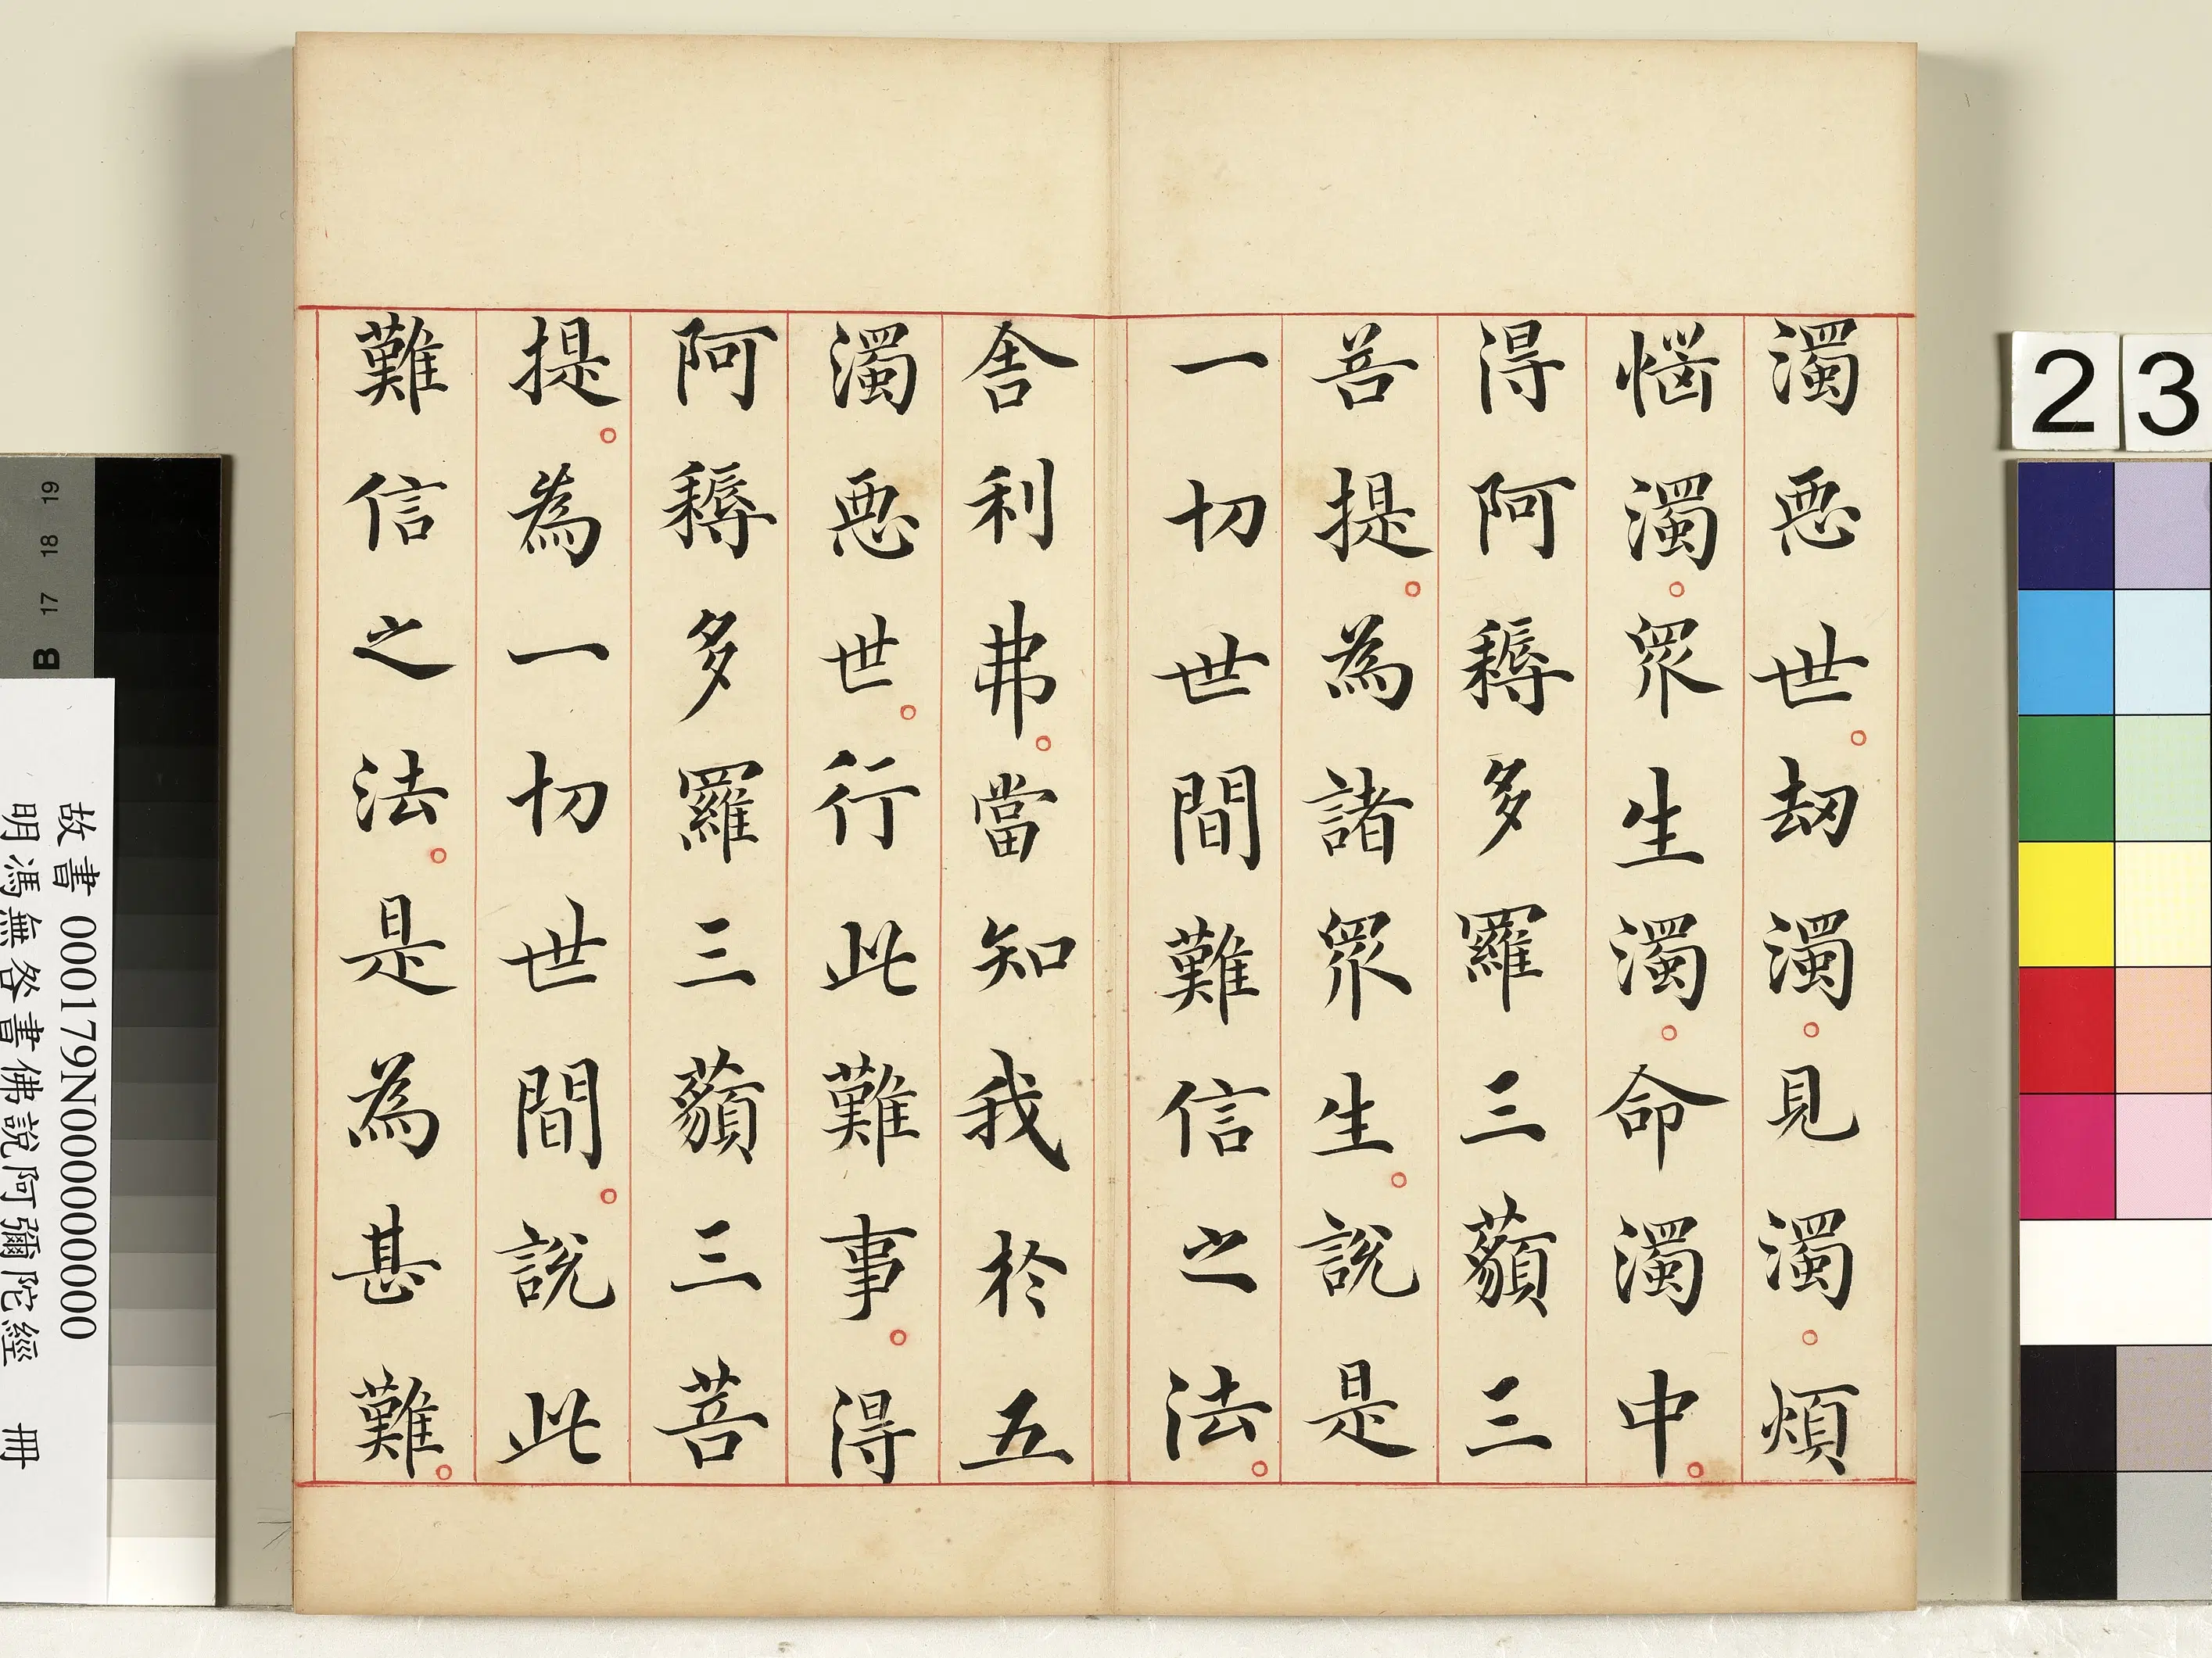 濁惡世。劫濁。見濁。煩
惱濁。眾生濁。命濁中。
得阿耨多羅三藐三
菩提。為諸眾生。說是
一切世間難信之法。
舍利弗。當知我於五
濁惡世。行此難事。得
阿耨多羅三藐三菩
提。為一切世間。說此
難信之法。是為甚難。
23
19
18
17
B
故書 000179N000000000
明馮無咎書佛說阿彌陀經 冊